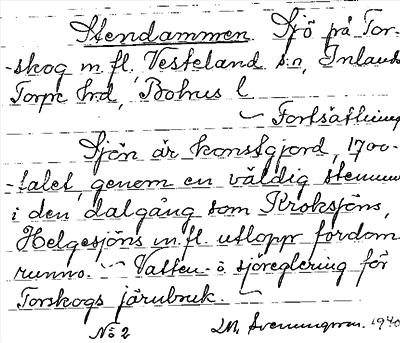 Stendammen. Sjö på Tor-
-skog m. fl. Vesteland s:n, Inlands
Torpe hrd, Bohus l
Fortsättning
Sjön är konstgjord, 1700-
-talet, genom en väldig stenmur
i den dalgång som Kroksjöns,
Helgesjöns m. fl. utlopp fordom
runno. Vatten- o. sjöreglering för
Torskogs järnbruk.
No 2 1940